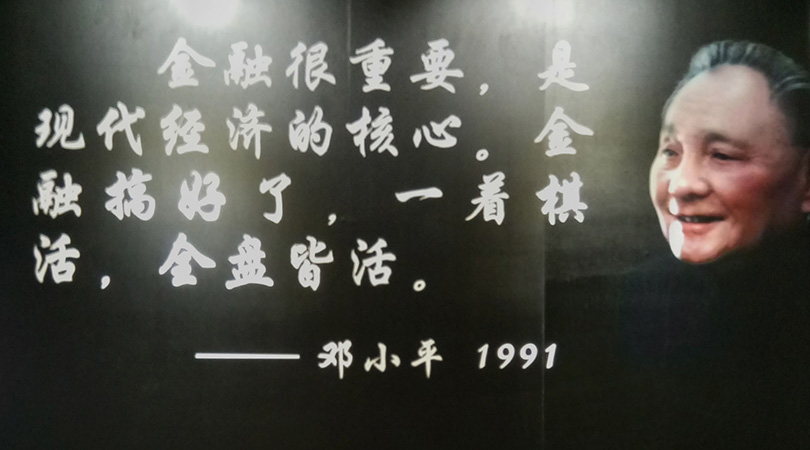 金融很重要，是
现代经济的核心。金
融搞好了，一着棋
活，全盘皆活。
——邓小平 1991